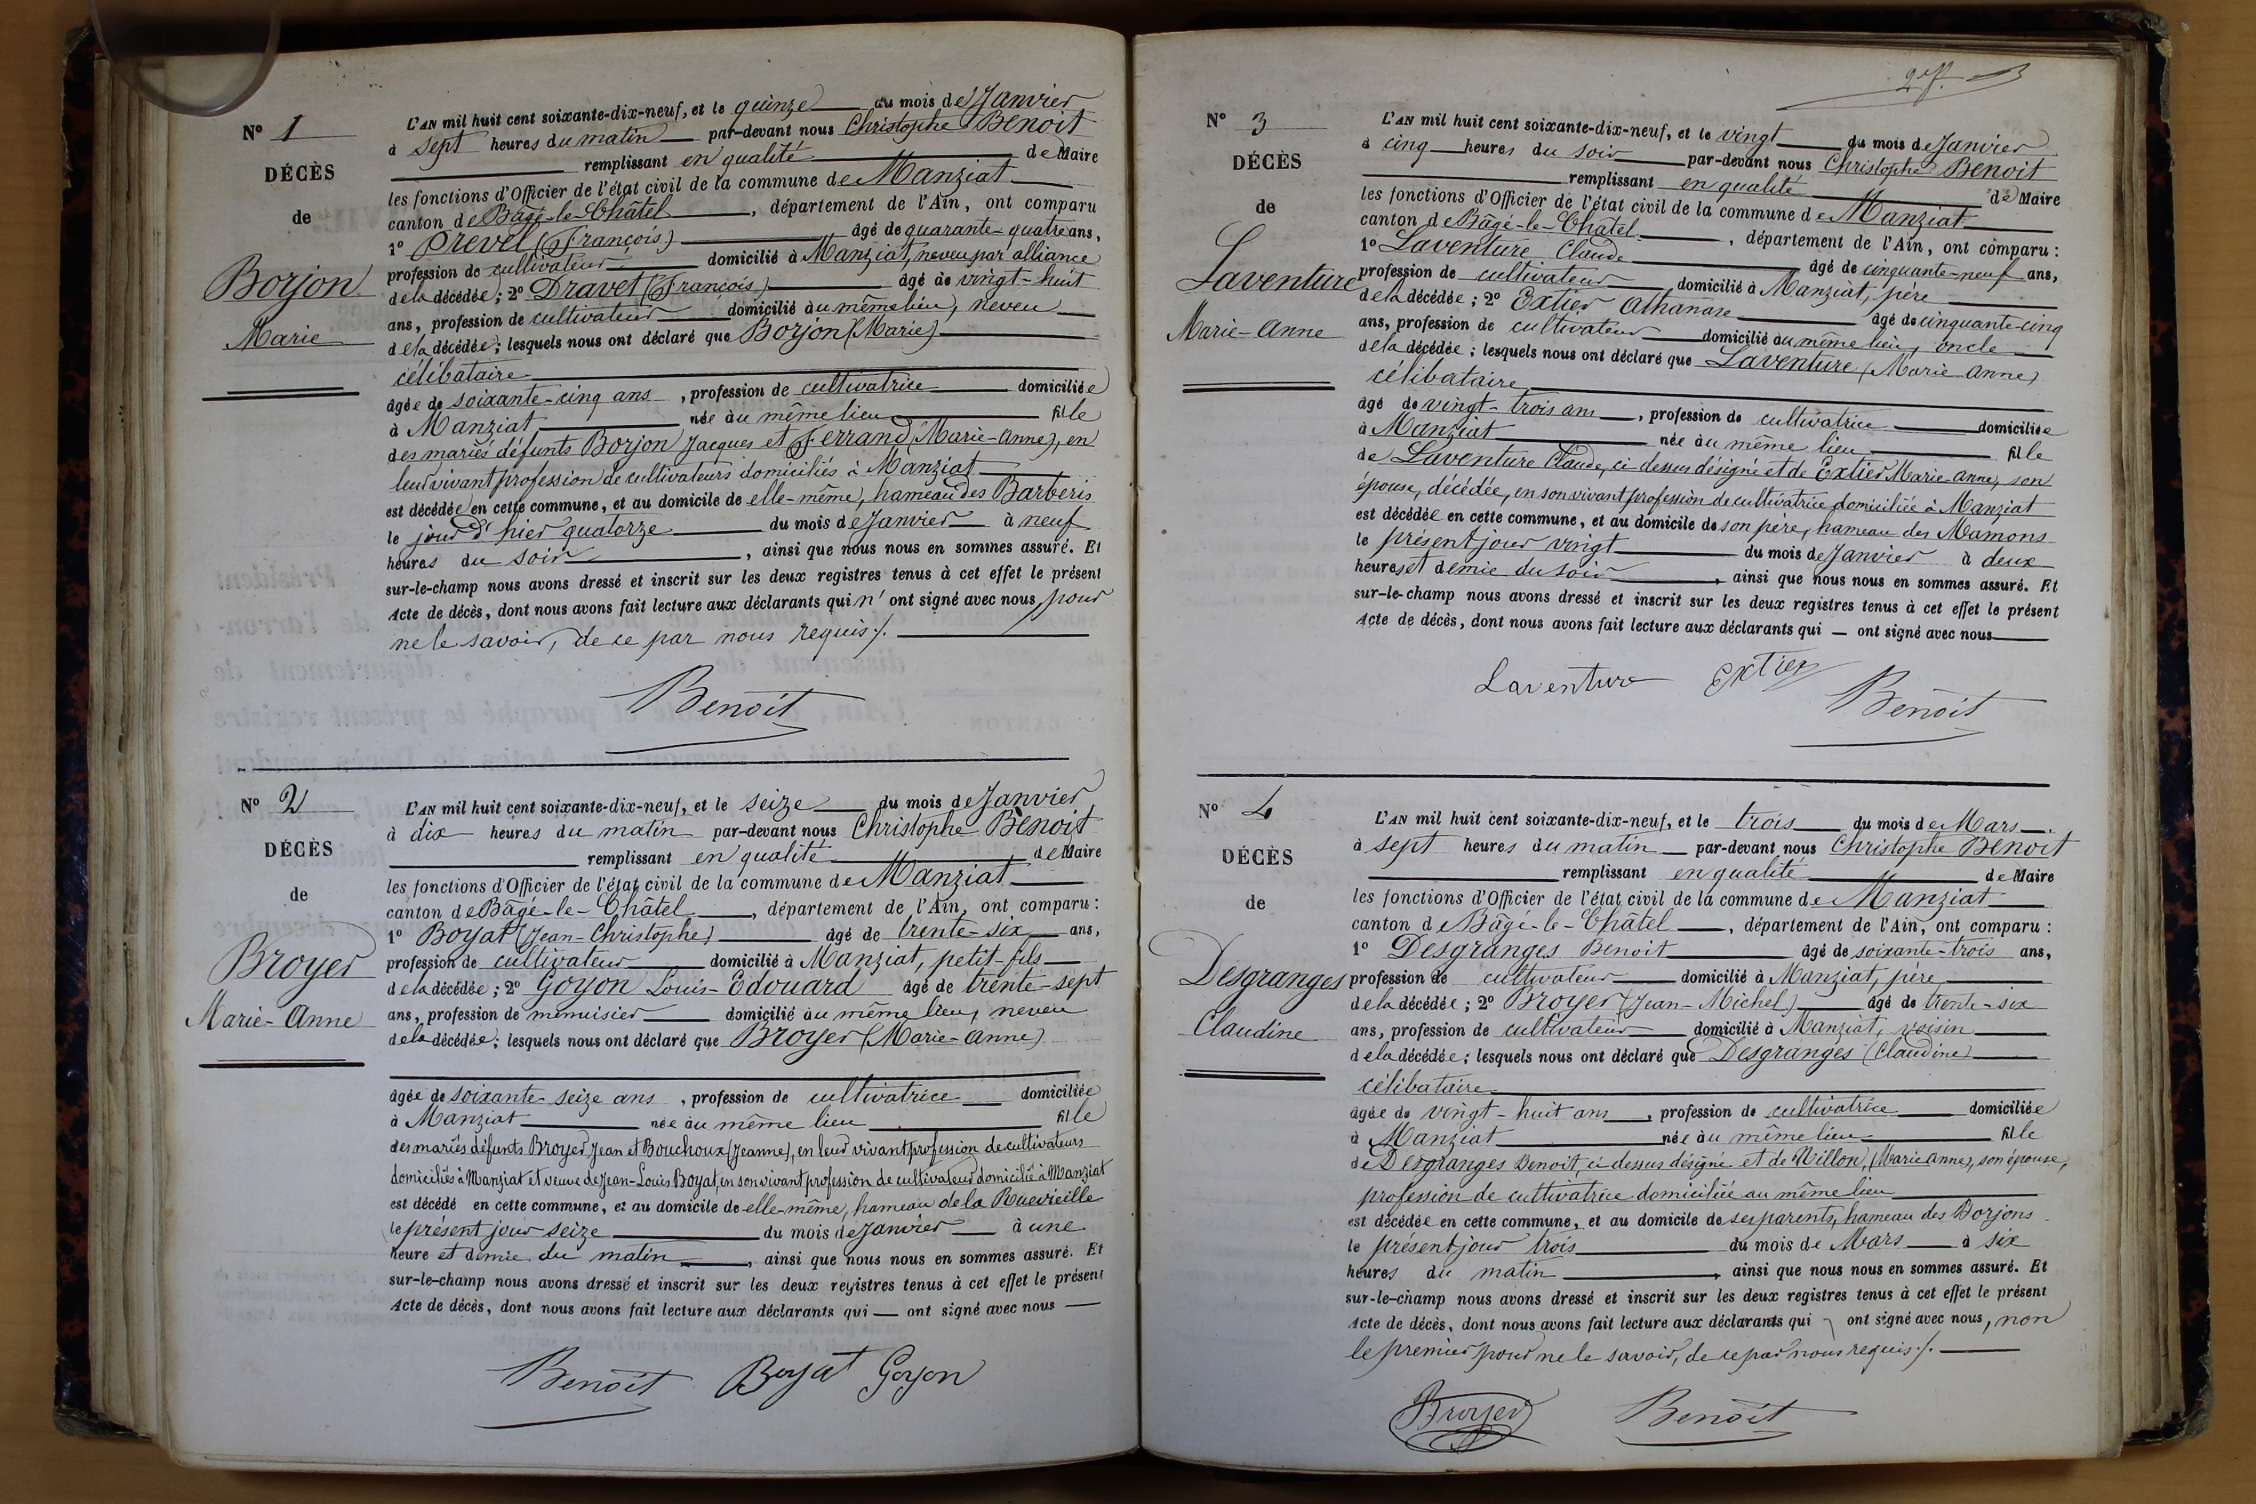 N° 1
DÉCÈS
de
Borjon
Marie
L'AN mil huit cent soixante-dix-neuf, et le quinze du mois de Janvier
à sept heures du matin par-devant nous Christophe Benoit
remplissant en qualité de Maire
les fonctions d'Officier de l'état civil de la commune de Manziat
canton de Bâgé-le-Châtel, département de l'Ain, ont comparu
1° Prevel (François) âgé de quarante-quatre ans,
profession de cultivateur domicilié à Manziat, neveu par alliance
de la décédée; 2° Dravet (François) âgé de vingt-huit
ans, profession de cultivateur domicilié au même lieu, neveu
de la décédée; lesquels nous ont déclaré que Borjon (Marie)
célibataire
âgée de soixante-cinq ans, profession de cultivatrice domiciliée
à Manziat née au même lieu fille
des mariés défunts Borjon Jacques et Ferrand (Marie-Anne), en
leur vivant profession de cultivateurs domiciliés à Manziat
est décédée en cette commune, et au domicile de elle-même, hameau des Barberis
le jour d'hier quatorze du mois de Janvier à neuf
heures du soir, ainsi que nous nous en sommes assuré. Et
sur-le-champ nous avons dressé et inscrit sur les deux registres tenus à cet effet le présent
Acte de décès, dont nous avons fait lecture aux déclarants qui n'ont signé avec nous pour
ne le savoir, de ce par nous requis./.
Benoit
N° 2
DÉCÈS
de
Broyer
Marie-Anne
L'AN mil huit cent soixante-dix-neuf, et le seize du mois de Janvier
à dix heures du matin par-devant nous Christophe Benoit
remplissant en qualité de Maire
les fonctions d'Officier de l'état civil de la commune de Manziat
canton de Bâgé-le-Châtel, département de l'Ain, ont comparu:
1° Boyat (Jean-Christophe) âgé de trente-six ans,
profession de cultivateur domicilié à Manziat, petit-fils
de la décédée; 2° Goyon Louis-Edouard âgé de trente-sept
ans, profession de menuisier domicilié au même lieu, neveu
de la décédée; lesquels nous ont déclaré que Broyer (Marie-Anne)
âgée de soixante-seize ans, profession de cultivatrice domiciliée
à Manziat née au même lieu fille
des mariés défunts Broyer Jean et Bouchoux (Jeanne), en leur vivant profession de cultivateurs
domiciliés à Manziat et veuve de Jean-Louis Boyat, en son vivant profession de cultivateur domicilié à Manziat
est décédé en cette commune, et au domicile de elle-même, hameau de la Ruevieille
le présent jour seize du mois de Janvier à une
heure et demie du matin, ainsi que nous nous en sommes assuré. Et
sur-le-champ nous avons dressé et inscrit sur les deux registres tenus à cet effet le présent
Acte de décès, dont nous avons fait lecture aux déclarants qui — ont signé avec nous —
Benoit Boyat Goyon
N° 3
DÉCÈS
de
Laventure
Marie-Anne
L'AN mil huit cent soixante-dix-neuf, et le vingt du mois de Janvier
à cinq heures du soir par-devant nous Christophe Benoit
remplissant en qualité de Maire
les fonctions d'Officier de l'état civil de la commune de Manziat
canton de Bâgé-le-Châtel, département de l'Ain, ont comparu:
1° Laventure Claude âgé de cinquante-neuf ans,
profession de cultivateur domicilié à Manziat, père
de la décédée; 2° Extier Athanase âgé de cinquante-cinq
ans, profession de cultivateur domicilié au même lieu, oncle
de la décédée; lesquels nous ont déclaré que Laventure (Marie Anne)
célibataire
âgé de vingt-trois ans, profession de cultivatrice domiciliée
à Manziat née au même lieu fille
de Laventure Claude, ci-dessus désigné et de Extier Marie-Anne, son
épouse, décédée, en son vivant profession de cultivatrice domiciliée à Manziat
est décédée en cette commune, et au domicile de son père, hameau des Mamons
le présent jour vingt du mois de Janvier à deux
heures et demie du soir, ainsi que nous nous en sommes assuré. Et
sur-le-champ nous avons dressé et inscrit sur les deux registres tenus à cet effet le présent
Acte de décès, dont nous avons fait lecture aux déclarants qui — ont signé avec nous
Laventure Extier
Benoit
N° 4
DÉCÈS
de
Desgranges
Claudine
L'AN mil huit cent soixante-dix-neuf, et le trois du mois de Mars
à sept heures du matin par-devant nous Christophe Benoit
remplissant en qualité de Maire
les fonctions d'Officier de l'état civil de la commune de Manziat
canton de Bâgé-le-Châtel, département de l'Ain, ont comparu:
1° Desgranges Benoit âgé de soixante-trois ans,
profession de cultivateur domicilié à Manziat, père
de la décédée; 2° Broyer (Jean-Michel) âgé de trente-six
ans, profession de cultivateur domicilié à Manziat, voisin
de la décédée; lesquels nous ont déclaré que Desgranges (Claudine)
célibataire
âgée de vingt-huit ans, profession de cultivatrice domiciliée
à Manziat née au même lieu fille
de Desgranges Benoit, ci-dessus désigné et de Villon, (Marie Anne), son épouse,
profession de cultivatrice domiciliée au même lieu
est décédée en cette commune, et au domicile de ses parents, hameau des Borjons
le présent jour trois du mois de Mars à six
heures du matin, ainsi que nous nous en sommes assuré. Et
sur-le-champ nous avons dressé et inscrit sur les deux registres tenus à cet effet le présent
Acte de décès, dont nous avons fait lecture aux déclarants qui ont signé avec nous, non
le premier pour ne le savoir, de ce par nous requis./.
Broyer Benoit